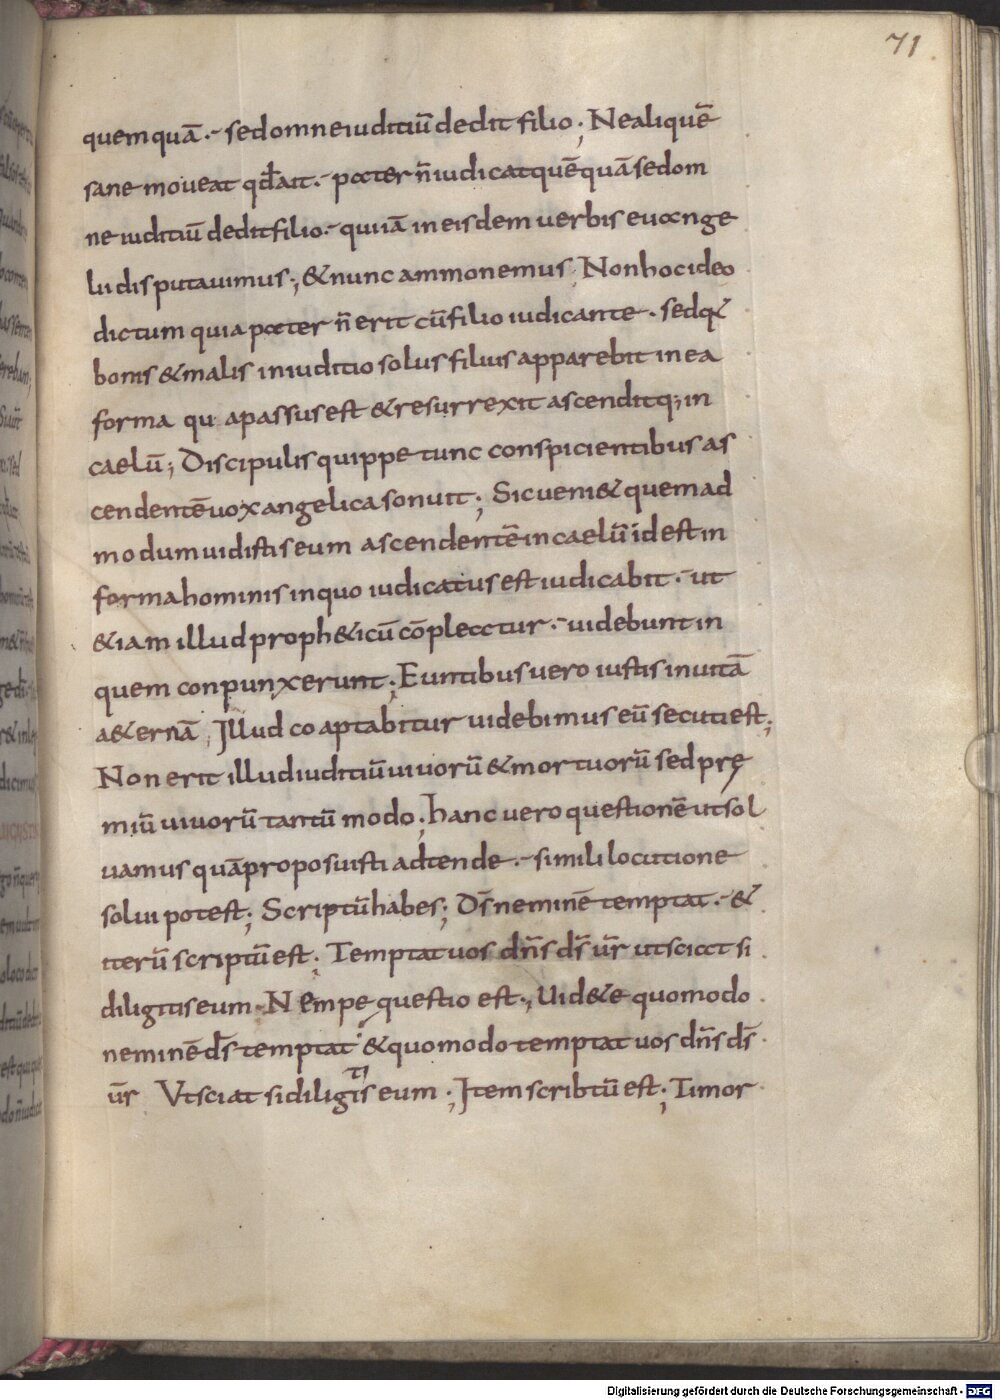 71
quemquā·- sed omne iuditiū dedit filio; Ne aliquē
sane moueat qđ ait·- pater n̄ iudicat quēquā sed om
ne iuditiū dedit filio·- quiiā in eisdem uerbis euange
lii disputauimus; & nunc ammonemus Non hoc ideo
dictum quia pater n̄ erit cū filio iudicante· sed q
bonis & malis in iuditio solus filius apparebit in ea
forma qu a passus est & resurrexit ascenditq; in
caelū; Discipulis quippe tunc conspicientibus as
cendentē uox angelica sonuit; Sic ueni& quemad
modum uidistis eum ascendentē in caelū id est in
forma hominis in quo iudicatus est iudicabit·- ut
&iam illud proph&icū cōplectur·- uidebunt in
quem conpunxerunt; Euntibus uero iustis in uitā
a&ernā; Illud coaptabitur uidebimus eū secuti est;
Non erit illud iuditiū uiuorū & mortuorū sed prę
miū uiuorū tantū modo; hanc uero questionē ut sol
uamus quā proposuisti adtende·- simili locutione
solui potest; Scriptū habes; Dś neminē temptat·- &
iterū scriptū est; Temptat uos dn̄s dś ur̄ ut sciat si
diligitis eum· Nempe questio est; Uid&e quomodo
neminē dś temptat & quomodo temptat uos dn̄s dś
ur̄ Vt sciat si diligitis eum; Item scribtū est; Timor
Digitalisierung gefördert durch die Deutsche Forschungsgemeinschaft - DFG